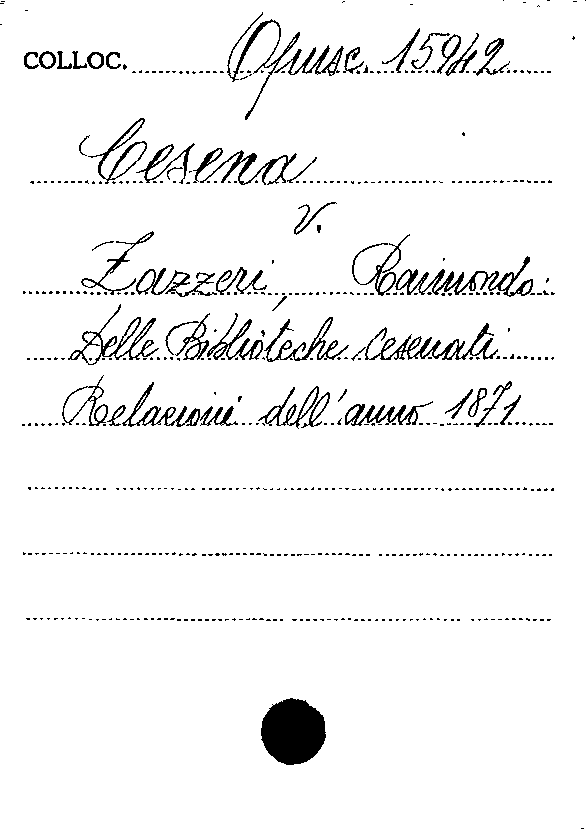 COLLOC. Opusc. 15942
Cesena
V.
Zazzeri, Raimondo:
Delle Biblioteche Cesenati
Relazioni dell'anno 1871